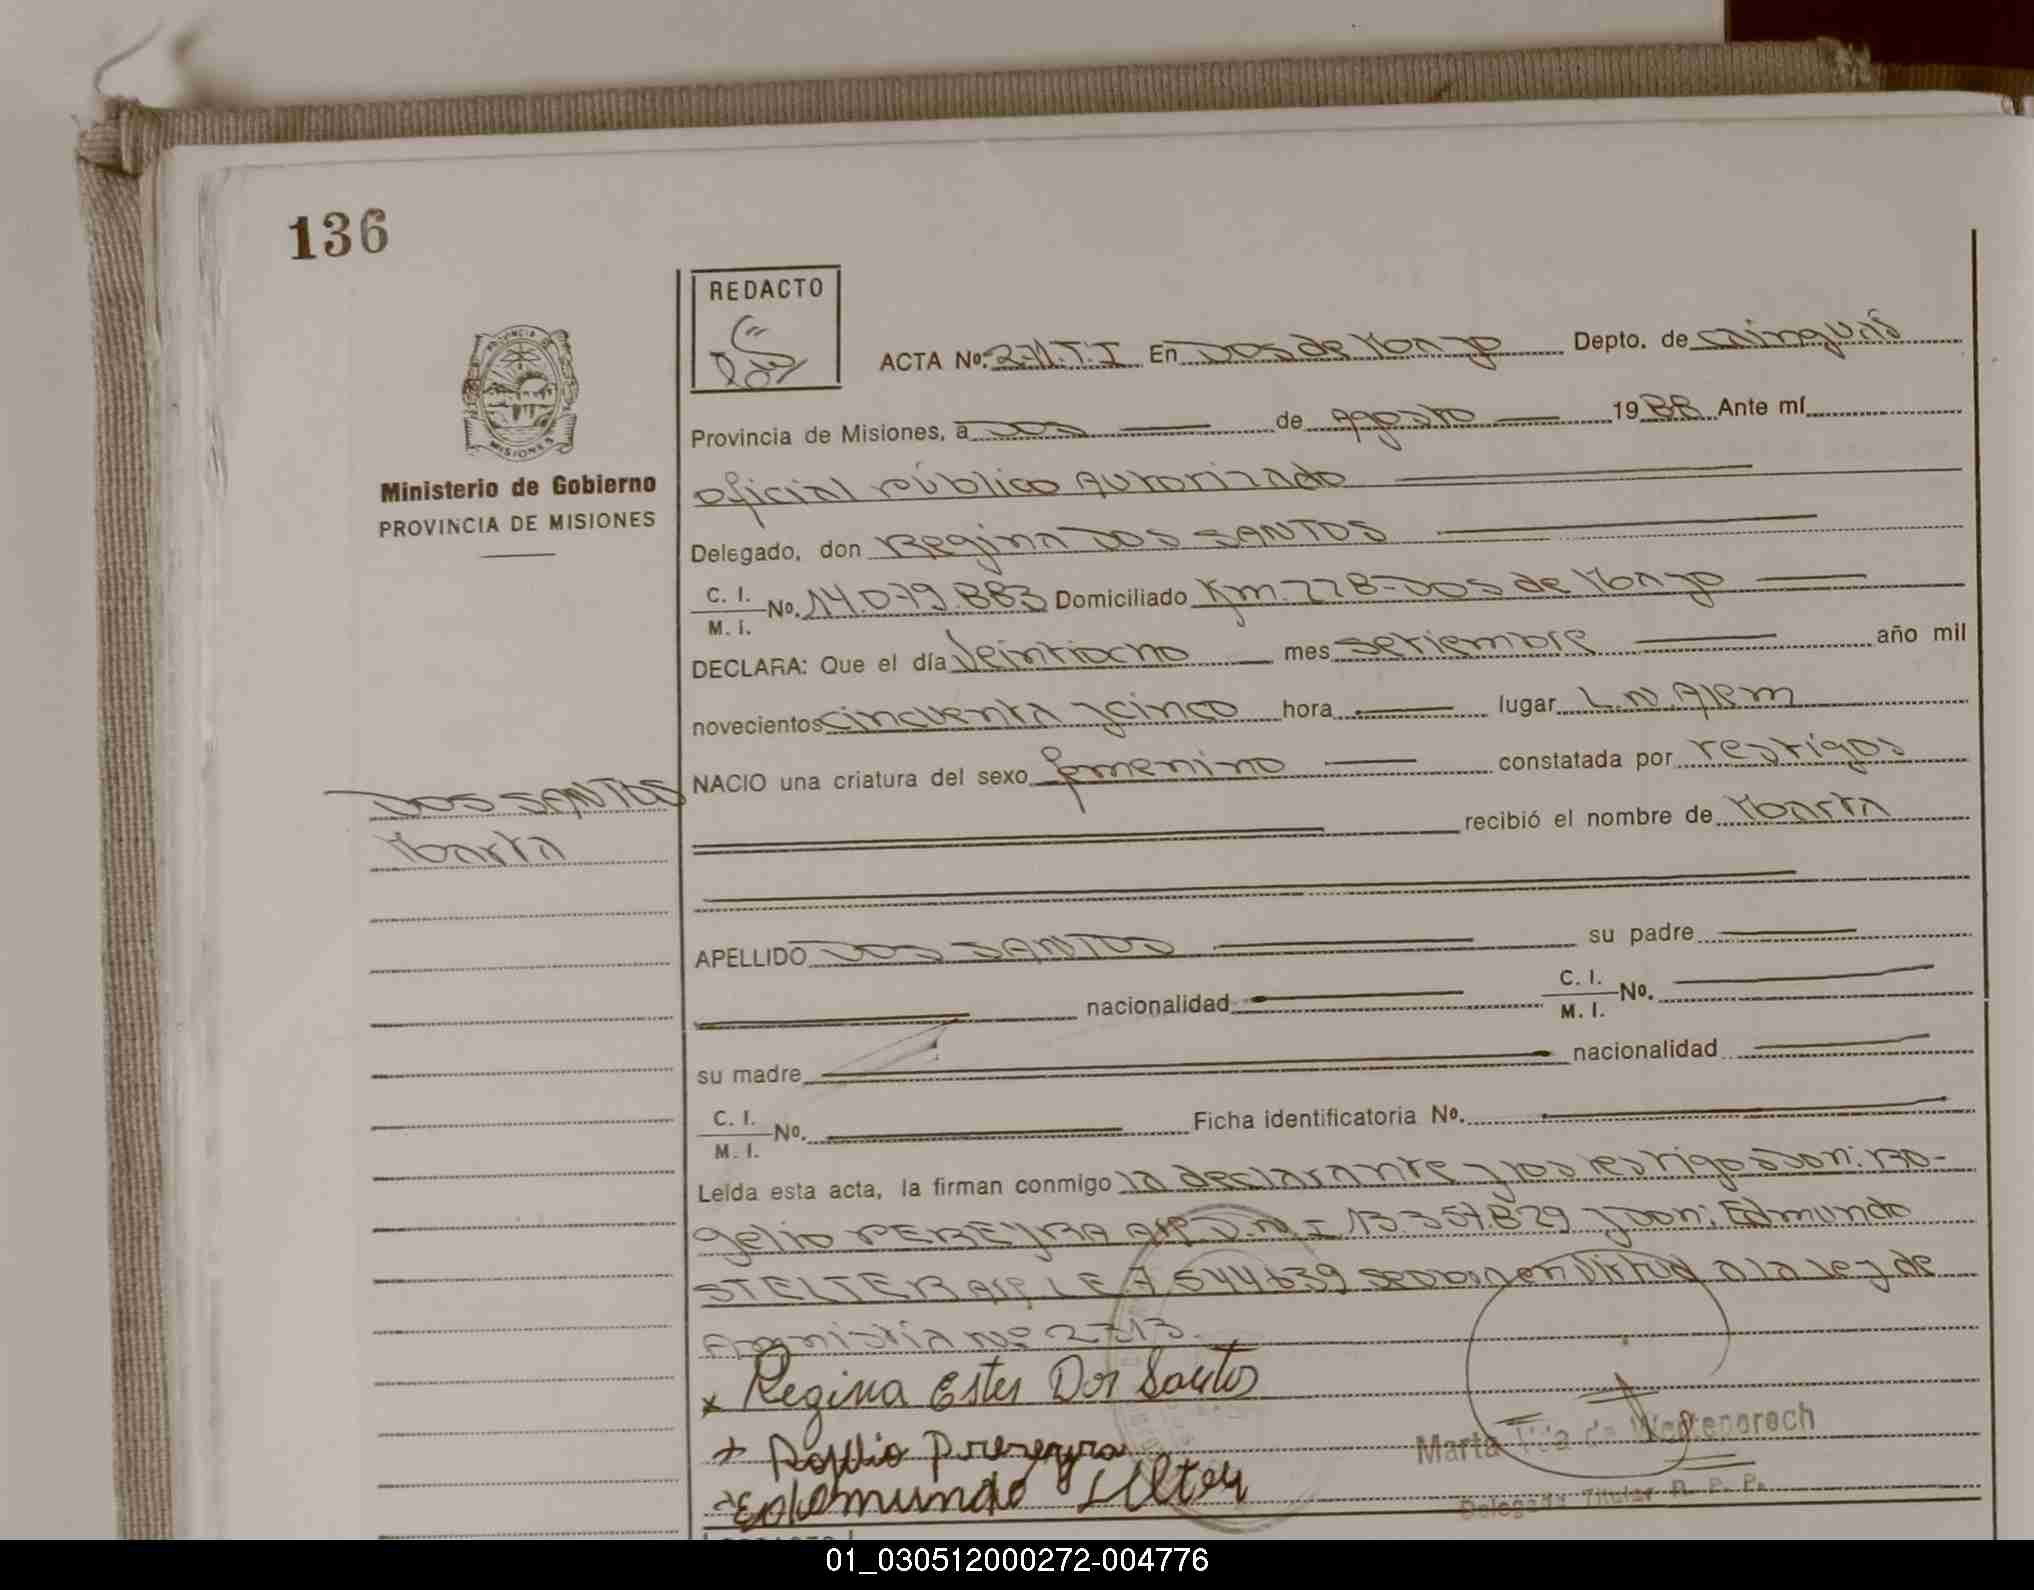 136
REDACTO
PROVINCIA
MISIONES
Ministerio de Gobierno
PROVINCIA DE MISIONES
ACTA Nº. 271.T.I En Dos de Mayo Depto. de Cainguás
Provincia de Misiones, a Dos de Agosto 1988 Ante mí
oficial público Autorizado
Delegado, don Regina DOS SANTOS
C. I.
M. I. Nº. 14.079.883 Domiciliado Km. 228-Dos de Mayo
DECLARA: Que el día Veintiocho mes setiembre año mil
novecientos cincuenta y cinco hora lugar L.N.Alem
NACIO una criatura del sexo femenino constatada por testigos
DOS SANTOS
recibió el nombre de Marta
Marta
APELLIDO DOS SANTOS su padre
nacionalidad C. I.
M. I. Nº.
su madre nacionalidad
C. I.
M. I. Nº. Ficha identificatoria Nº.
Leída esta acta, la firman conmigo la declarante y los testigos Don: Ro-
gelio PEREYRA D.N.I 13.357.829 y Don: Edmundo
STELTER L.E. 7.544.639 en virtud a la Ley de
Amnistía Nº 2713.
x Regina Ester Dos Santos
Rogelio Pereyra
Edmundo Stelter
Marta de
Delegada Titular R. P. P.
01_030512000272-004776